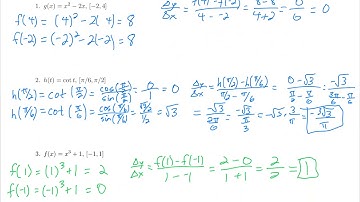 1. g(x) = x² − 2x, [−2, 4]
f(4) = (4)² − 2(4) = 8
f(-2) = (-2)² − 2(-2) = 8
Δy/Δx = f(4) − f(-2) / 4 − -2 = 8−8 / 4+2 = 0/6 = 0
2. h(t) = cot t, [π/6, π/2]
h(π/2) = cot(π/2) = cos(π/2)/sin(π/2) = 0/1 = 0
h(π/6) = cot(π/6) = cos(π/6)/sin(π/6) = √3/2 / 1/2 = √3
Δy/Δx = h(π/2) − h(π/6) / π/2 − π/6 = 0 − √3 / π/2 − π/6 = −√3 / 3π/6 − π/6
= −√3 / 2π/6 = −√3 / π/3 = −√3 · 3/π = −3√3/π
3. f(x) = x³ + 1, [−1, 1]
f(1) = (1)³ + 1 = 2
f(-1) = (-1)³ + 1 = 0
Δy/Δx = f(1) − f(-1) / 1 − -1 = 2 − 0 / 1 + 1 = 2/2 = 1